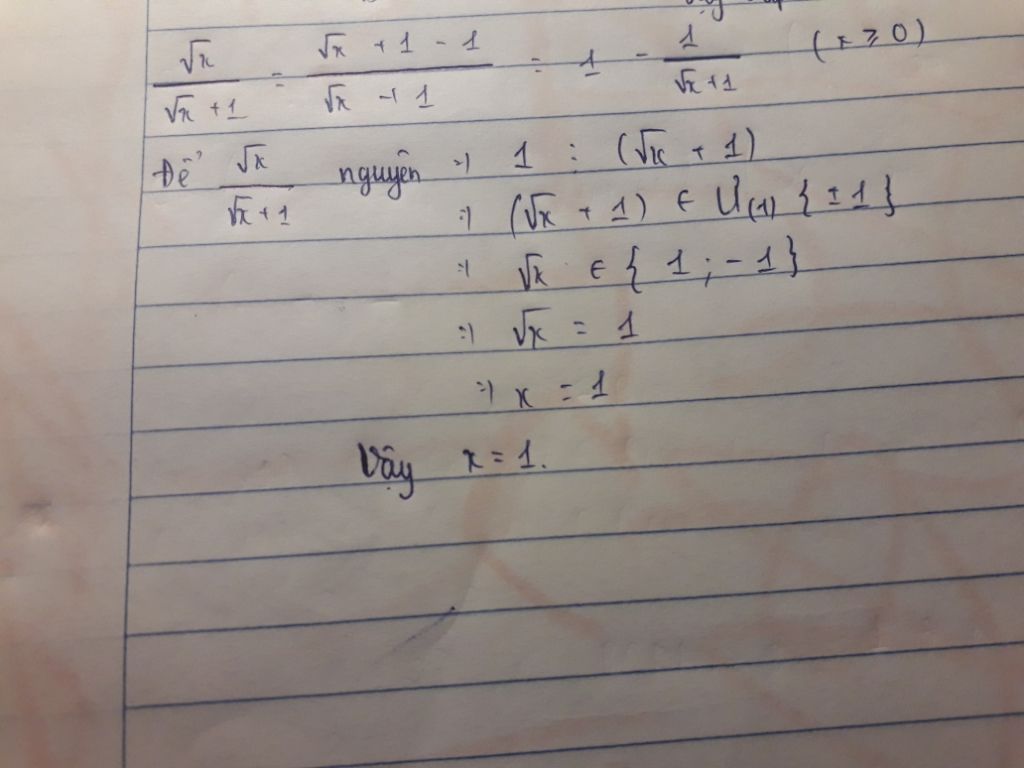 √x / (√x + 1) = (√x + 1 - 1) / (√x + 1) = 1 - 1 / (√x + 1) (x ≥ 0)
Để √x / (√x + 1) nguyên => 1 ⋮ (√x + 1)
=> (√x + 1) ∈ Ư(1) {±1}
=> √x ∈ {1; -1}
=> √x = 1
=> x = 1
Vậy x = 1.